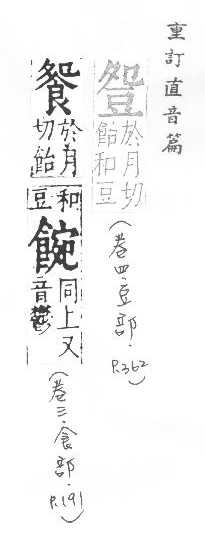 重訂直音篇
於月切
飴和豆
(卷四.豆部.P.362)
於月
切飴
和
豆
同上又
音鬱
(卷三.食部.P.191)